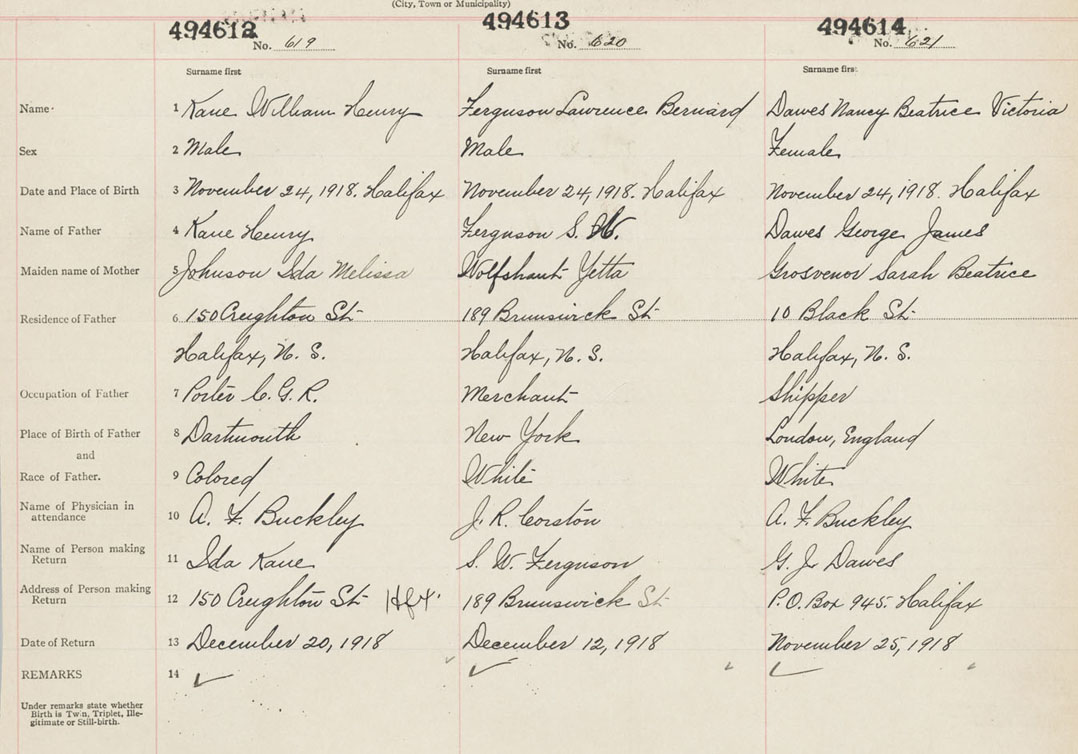 (City, Town or Municipality)
494612 494613 494614
No. 619 No. 620 No. 621
Surname first Surname first Surname first
Name 1 Kane William Henry Ferguson Lawrence Bernard Dawes Nancy Beatrice Victoria
Sex 2 Male Male Female
Date and Place of Birth 3 November 24, 1918. Halifax November 24, 1918. Halifax November 24, 1918. Halifax
Name of Father 4 Kane Henry Ferguson S. W. Dawes George James
Maiden name of Mother 5 Johnson Ida Melissa Wolfshant Yetta Grosvenor Sarah Beatrice
Residence of Father 6 150 Creighton St 189 Brunswick St 10 Black St
Halifax, N. S. Halifax, N. S. Halifax, N. S.
Occupation of Father 7 Porter C. G. R. Merchant Shipper
Place of Birth of Father 8 Dartmouth New York London, England
and
Race of Father. 9 Colored White White
Name of Physician in
attendance 10 A. F. Buckley J. R. Corston A. F. Buckley
Name of Person making
Return 11 Ida Kane S. W. Ferguson G. J. Dawes
Address of Person making
Return 12 150 Creighton St Hfx 189 Brunswick St P.O. Box 945. Halifax
Date of Return 13 December 20, 1918 December 12, 1918 November 25, 1918
REMARKS 14
Under remarks state whether
Birth is Twin, Triplet, Ille-
gitimate or Still-birth.